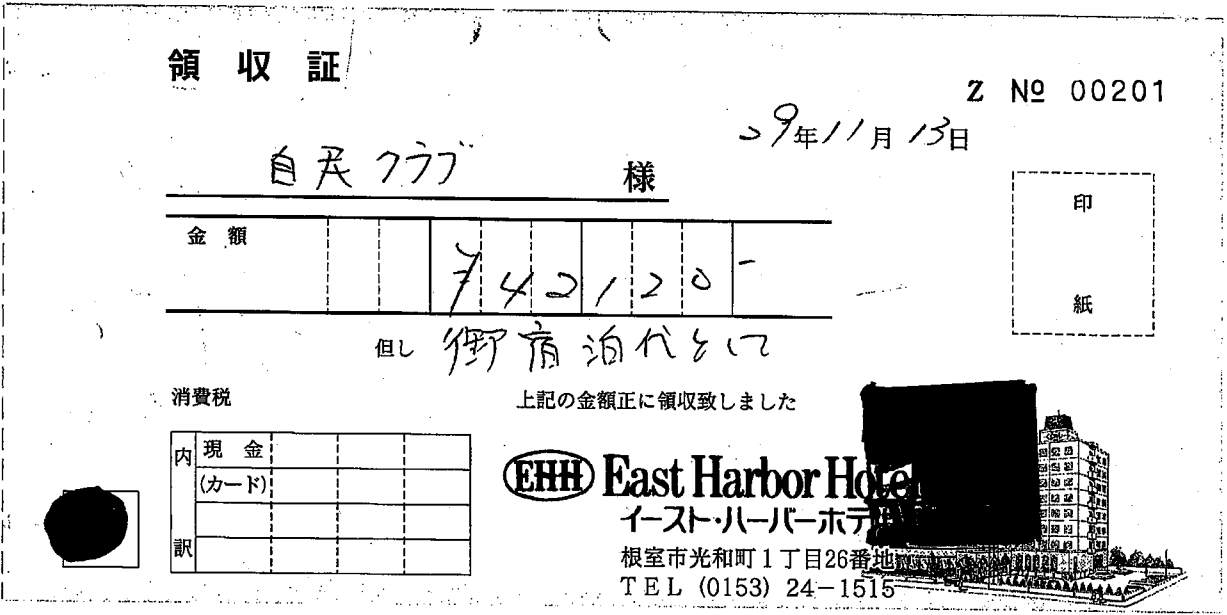 領収証
Z № 00201
29年11月13日
自民クラブ 様
金額 ¥42120-
印
紙
但し 御宿泊代として
消費税
上記の金額正に領収致しました
内訳
現金
(カード)
EHH East Harbor Hotel
イースト・ハーバーホテル
根室市光和町1丁目26番地
TEL (0153) 24-1515